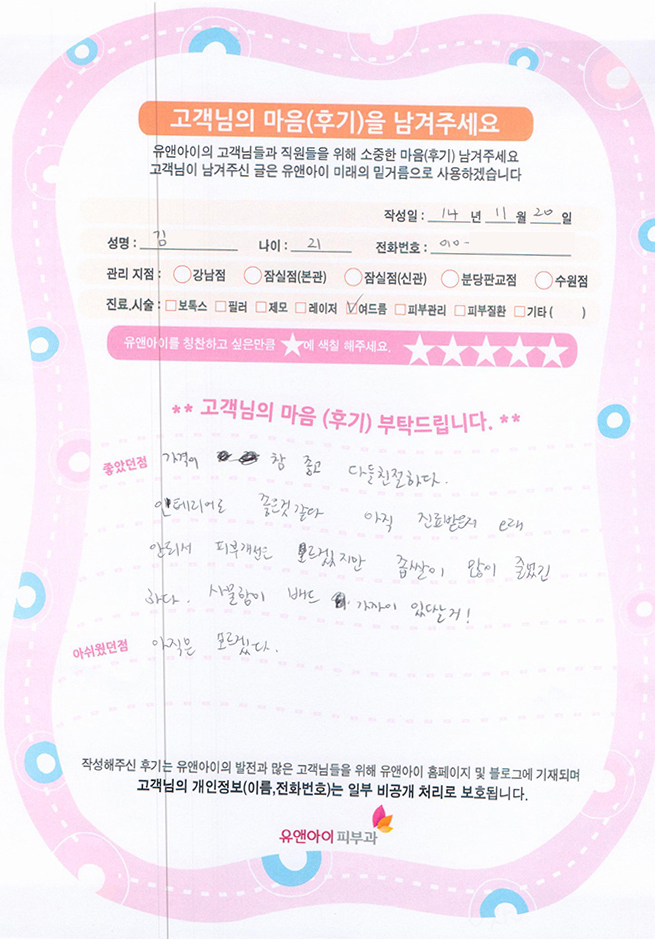 고객님의 마음(후기)을 남겨주세요
유앤아이의 고객님들과 직원들을 위해 소중한 마음(후기) 남겨주세요
고객님이 남겨주신 글은 유앤아이 미래의 밑거름으로 사용하겠습니다
작성일 : 14 년 11 월 20 일
성명 : 김 나이 : 21 전화번호 : 010-
관리 지점 : 강남점 잠실점(본관) 잠실점(신관) 분당판교점 수원점
진료,시술 : 보톡스 필러 제모 레이저 여드름 피부관리 피부질환 기타 ( )
유앤아이를 칭찬하고 싶은만큼 ★에 색칠 해주세요. ★★★★★
** 고객님의 마음 (후기) 부탁드립니다. **
좋았던점 가격이 참 좋고 다들친절하다.
인테리어도 좋은것같다 아직 진료받은지 오래
안되서 피부개선은 모르겠지만 좁쌀이 많이 줄었긴
하다. 사물함이 배드 가까이 있단살거!
아쉬웠던점 아직은 모르겠다.
작성해주신 후기는 유앤아이의 발전과 많은 고객님들을 위해 유앤아이 홈페이지 및 블로그에 기재되며
고객님의 개인정보(이름,전화번호)는 일부 비공개 처리로 보호됩니다.
유앤아이 피부과